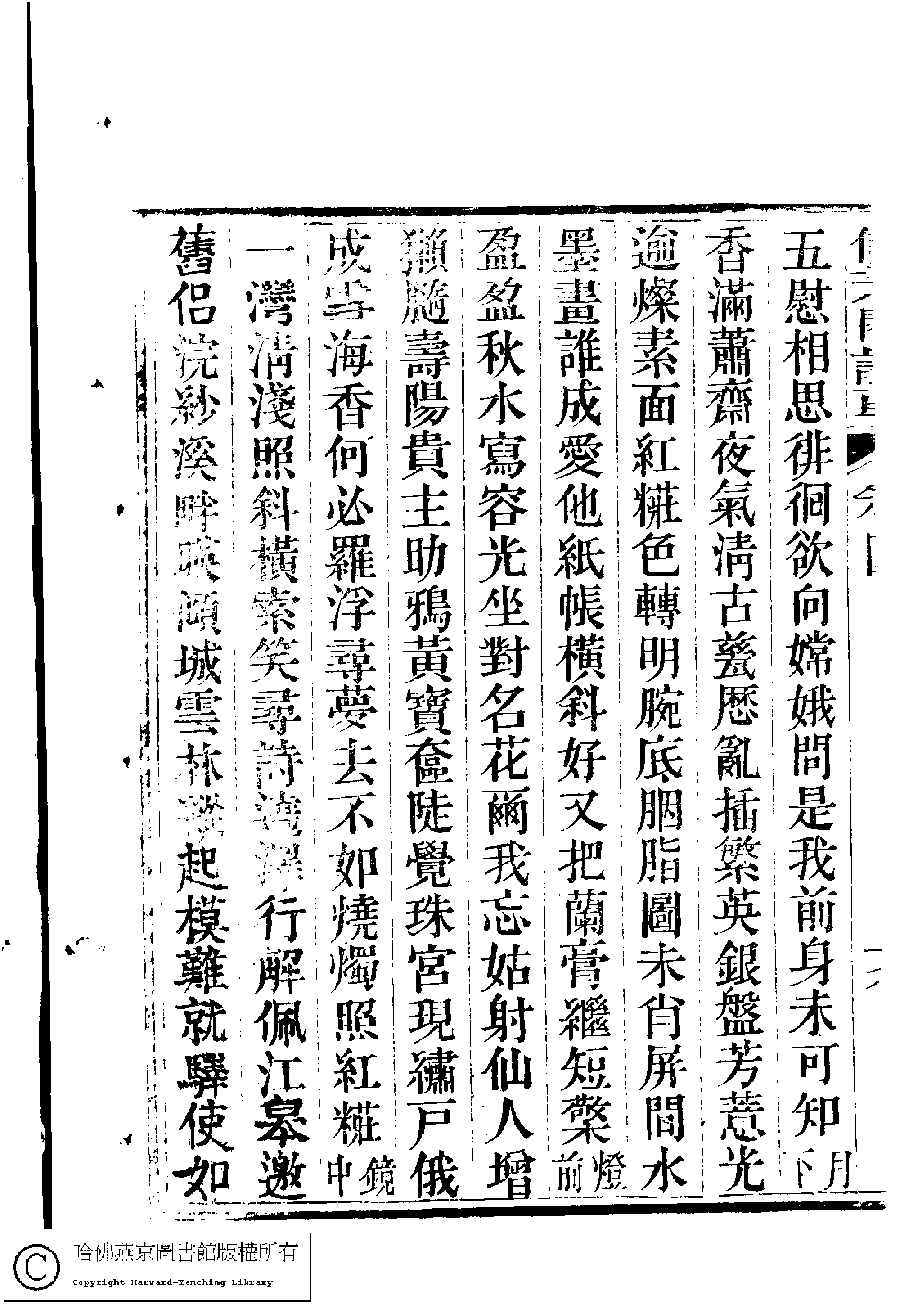 五慰相思徘徊欲向嫦娥問是我前身未可知月下
香滿蕭齋夜氣清古甆歷亂插繁英銀盤芳薏光
逾燦素面紅糚色轉明腕底胭脂圖未肖屏間水
墨畫誰成愛他紙帳橫斜好又把蘭膏繼短檠燈前
盈盈秋水寫容光坐對名花爾我忘姑射仙人增
獺髓壽陽貴主助鴉黃寶奩陡覺珠宮現繡戸俄
成雪海香何必羅浮尋夢去不如燒燭照紅糚鏡中
一灣清淺照斜橫索笑尋詩澆 行解佩江皋邀
舊侶浣紗溪畔 傾城雲林 起模難就驛使如
哈佛燕京圖書館版權所有
Copyright Harvard-Yenching Library